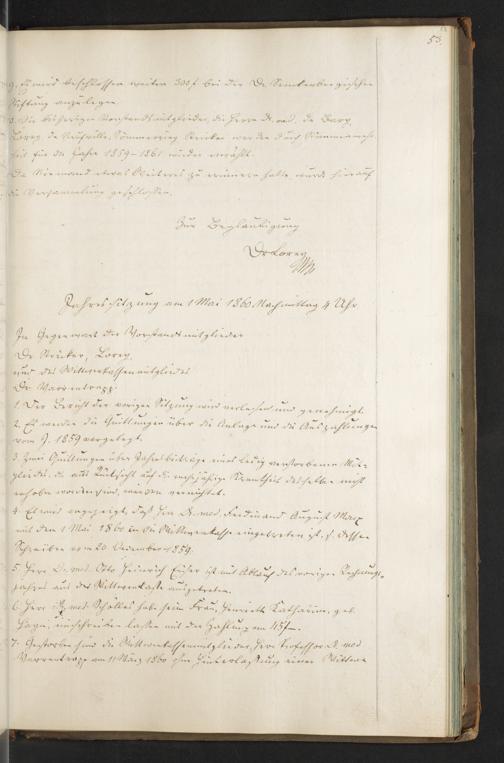 53.
2. Es wird beschlossen weitere 300 f bei der Dr. Senckenbergischen
Stiftung anzulegen.
3. Die bisherigen Vorstandsmitglieder, die Herrn Dr. med. de Bary,
Lorey, de Neufville, Sömmerring, Stricker werden durch Stimmenmehr-
heit für die Jahre 1859–1861 wieder erwählt.
Da Niemand etwas Weiteres zu erinnern hatte, wurde hierauf
die Versammlung geschlossen.
Zur Beglaubigung
Dr Lorey
Jahressitzung am 1 Mai 1860 Nachmittag 4 Uhr
In Gegenwart der Vorstandsmitglieder
Dr Stricker, Lorey,
und des Wittwenkassenmitgliedes
Dr Varrentrapp.
1. Der Bericht der vorigen Sitzung wird verlesen und genehmigt.
2. Es werden die Quittungen über die Anlage und die Auszahlungen
vom J. 1859 vorgelegt.
3. Zwei Quittungen über Jahresbeiträge eines ledig verstorbenen Mit-
gliedes, die aus Rücksicht auf die mehrjährige Krankheit desselben nicht
erhoben worden sind, werden vernichtet.
4. Es wird angezeigt, daß Herr Dr. med. Ferdinand August Marx
mit dem 1 Mai 1860 in die Wittwenkasse eingetreten ist, s. dessen
Schreiben vom 20 December 1859.
5. Herr Dr. med. Otto Heinrich ist mit Ablauf des vorigen Rechnungs-
jahres aus der Wittwenkasse ausgetreten.
6. Herr Dr. med. Schölles habe seine Frau, Henriette Katharine, geb.
einschreiben lassen mit der Zahlung von 45 f.
7. Gestorben sind die Wittwenkassenmitglieder, Herr Professor Dr. med.
Varrentrapp am 11 März 1860 mit Hinterlassung einer Wittwe